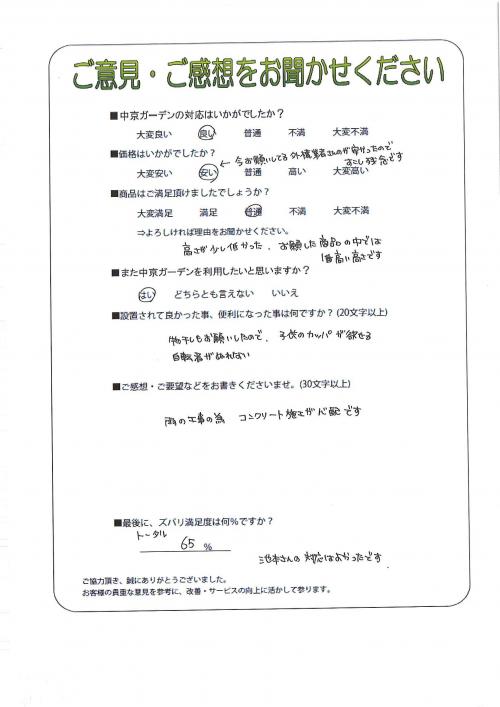 ご意見・ご感想をお聞かせください
■中京ガーデンの対応はいかがでしたか？
大変良い 良い 普通 不満 大変不満
■価格はいかがでしたか？
←今お願いしてる外構業者さんのが安かったので
すこし残念です
大変安い 安い 普通 高い 大変高い
■商品はご満足頂けましたでしょうか？
大変満足 満足 普通 不満 大変不満
⇒よろしければ理由をお聞かせください。
高さが少し低かった、お願した商品の中では
1番高い高さです
■また中京ガーデンを利用したいと思いますか？
はい どちらとも言えない いいえ
■設置されて良かった事、便利になった事は何ですか？(20文字以上)
物干しもお願いしたので、子供のカッパが干せる
自転車がぬれない
■ご感想・ご要望などをお書きくださいませ。(30文字以上)
雨の工事の為 コンクリート施工が心配です
■最後に、ズバリ満足度は何%ですか？
トータル
65 %
池本さんの対応はよかったです
ご協力頂き、誠にありがとうございました。
お客様の貴重な意見を参考に、改善・サービスの向上に活かして参ります。